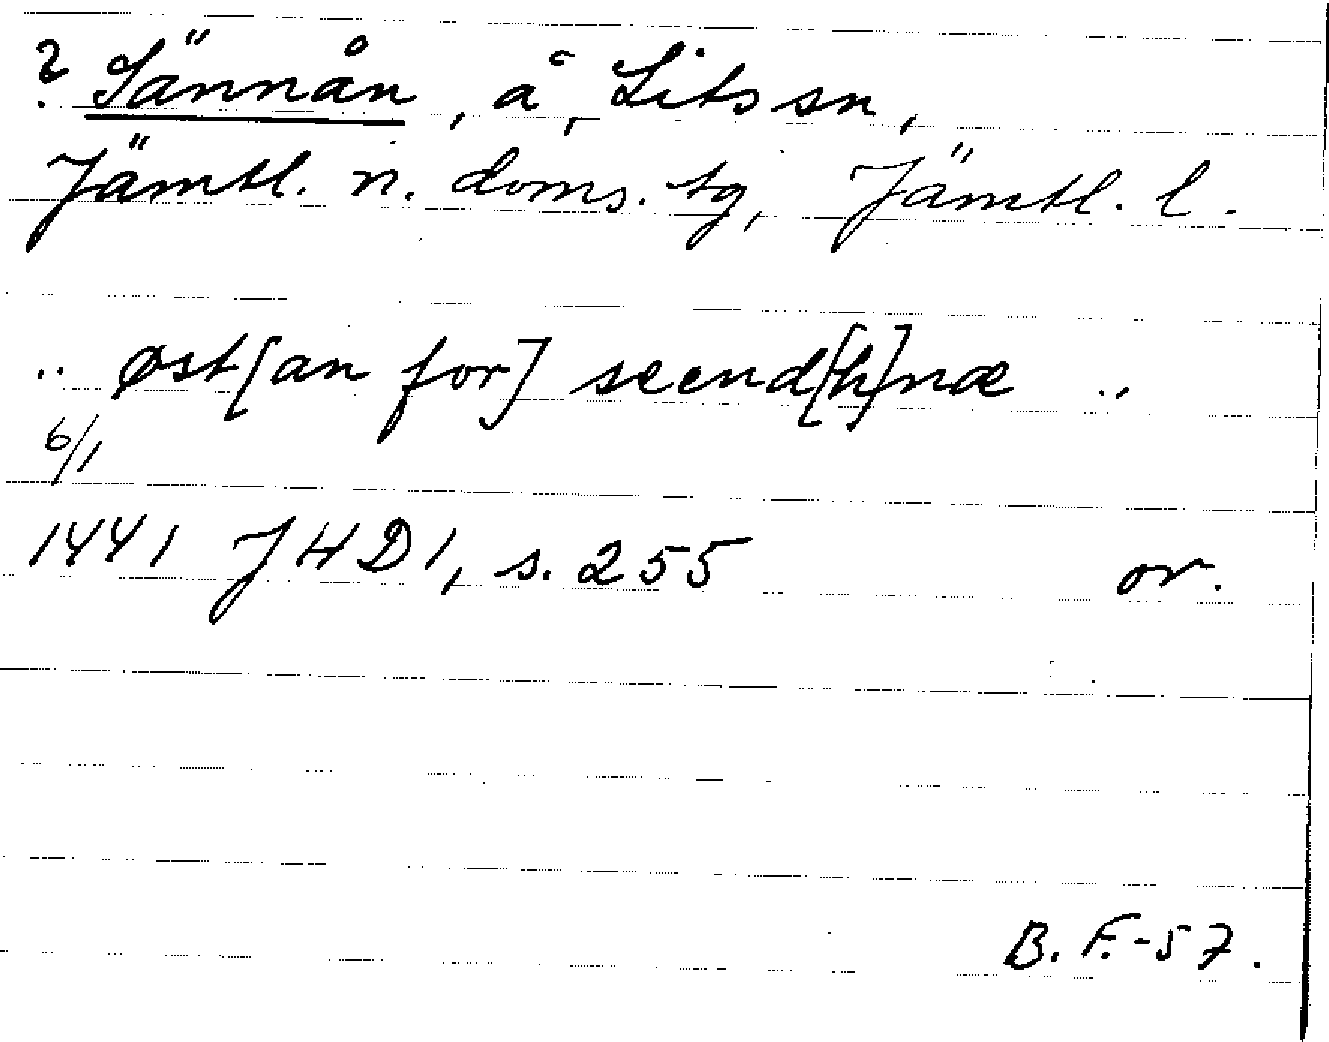 ? Sännån, å, Lits sn,
Jämtl. n. doms. tg, Jämtl. l.
.. øst[an for] seend[h]næ ..
6/1
1441 JHD1, s. 255 or.
B. F.-57.